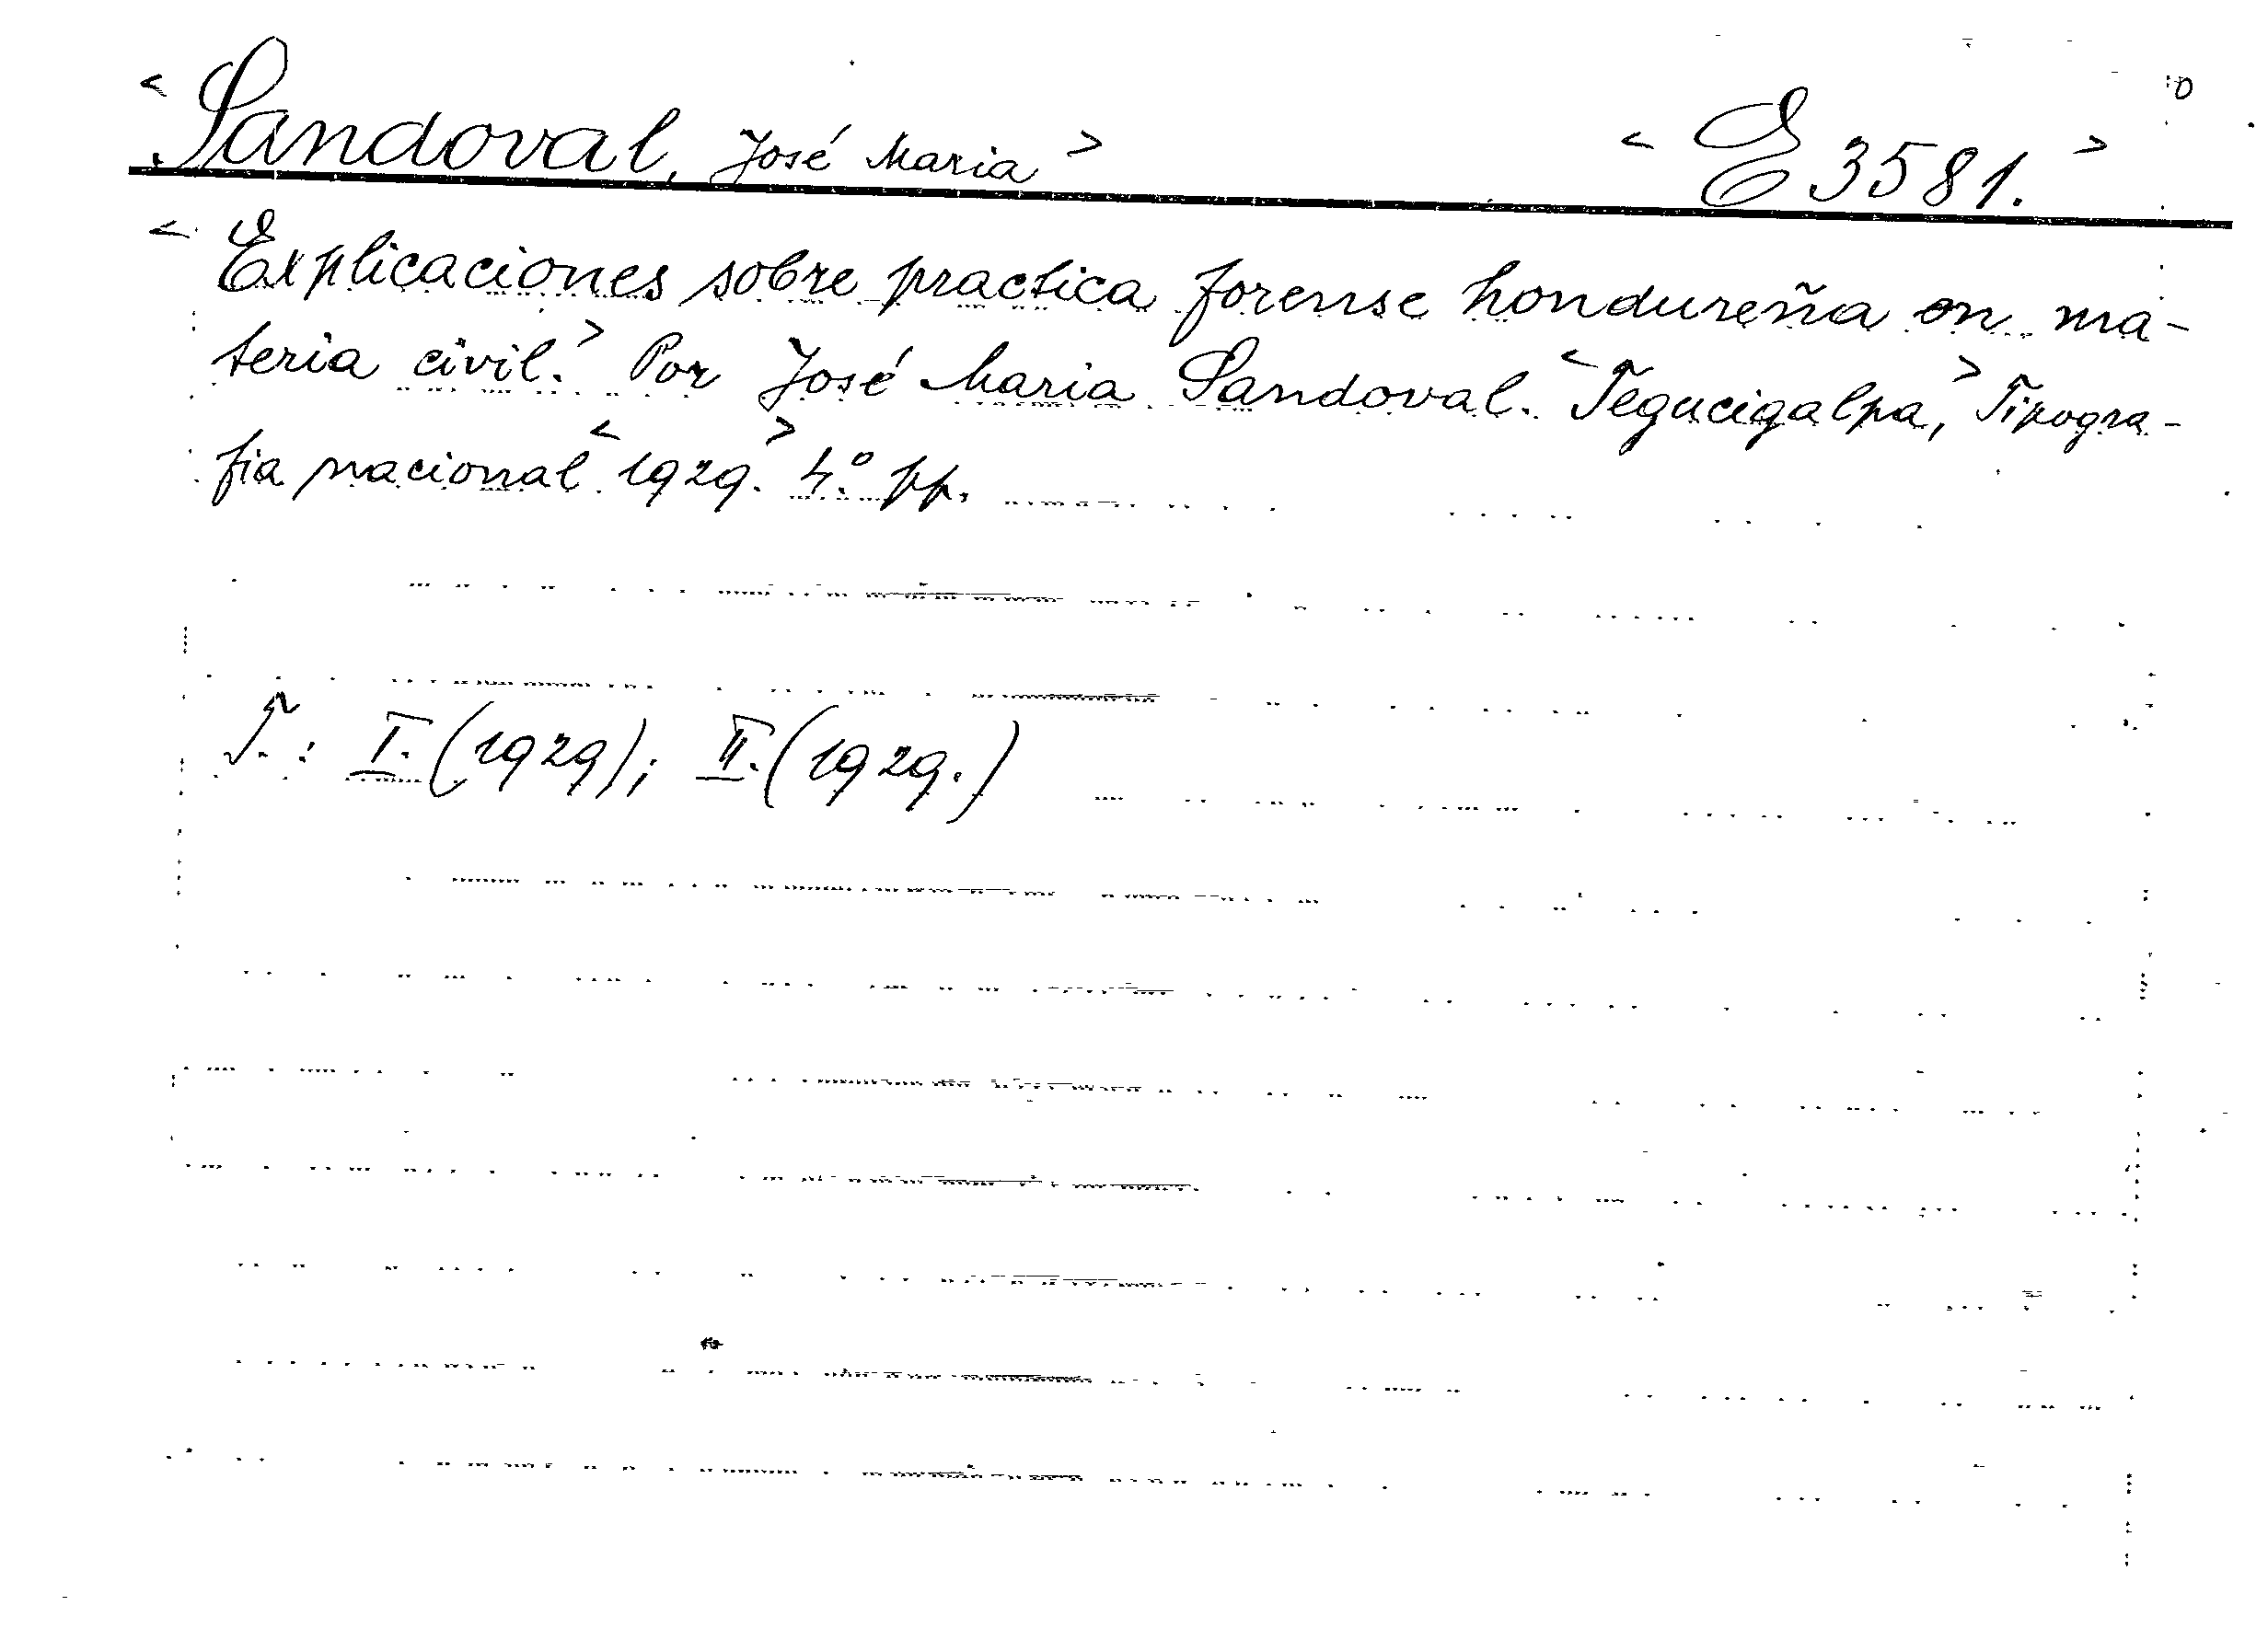 < Sandoval, José Maria > < E 3581. >
< Explicaciones sobre practica forense hondureña en ma-
teria civil. > Por José Maria Sandoval. < Tegucigalpa, > Tipogra-
fia nacional < 1929. > 4.° pp.
T. : I. (1929); II. (1929.)